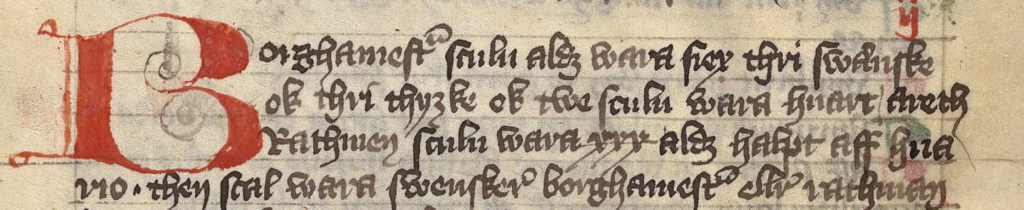 ij
Borghamestᷓ sculu aldz wara siex thri swænske
ok thri thyzke ok twe sculu wara huart areth
Rathmen sculu wara xxx aldz halpt aff hua
rio · then scal wara swensker borghamestᷓ ellr rathman